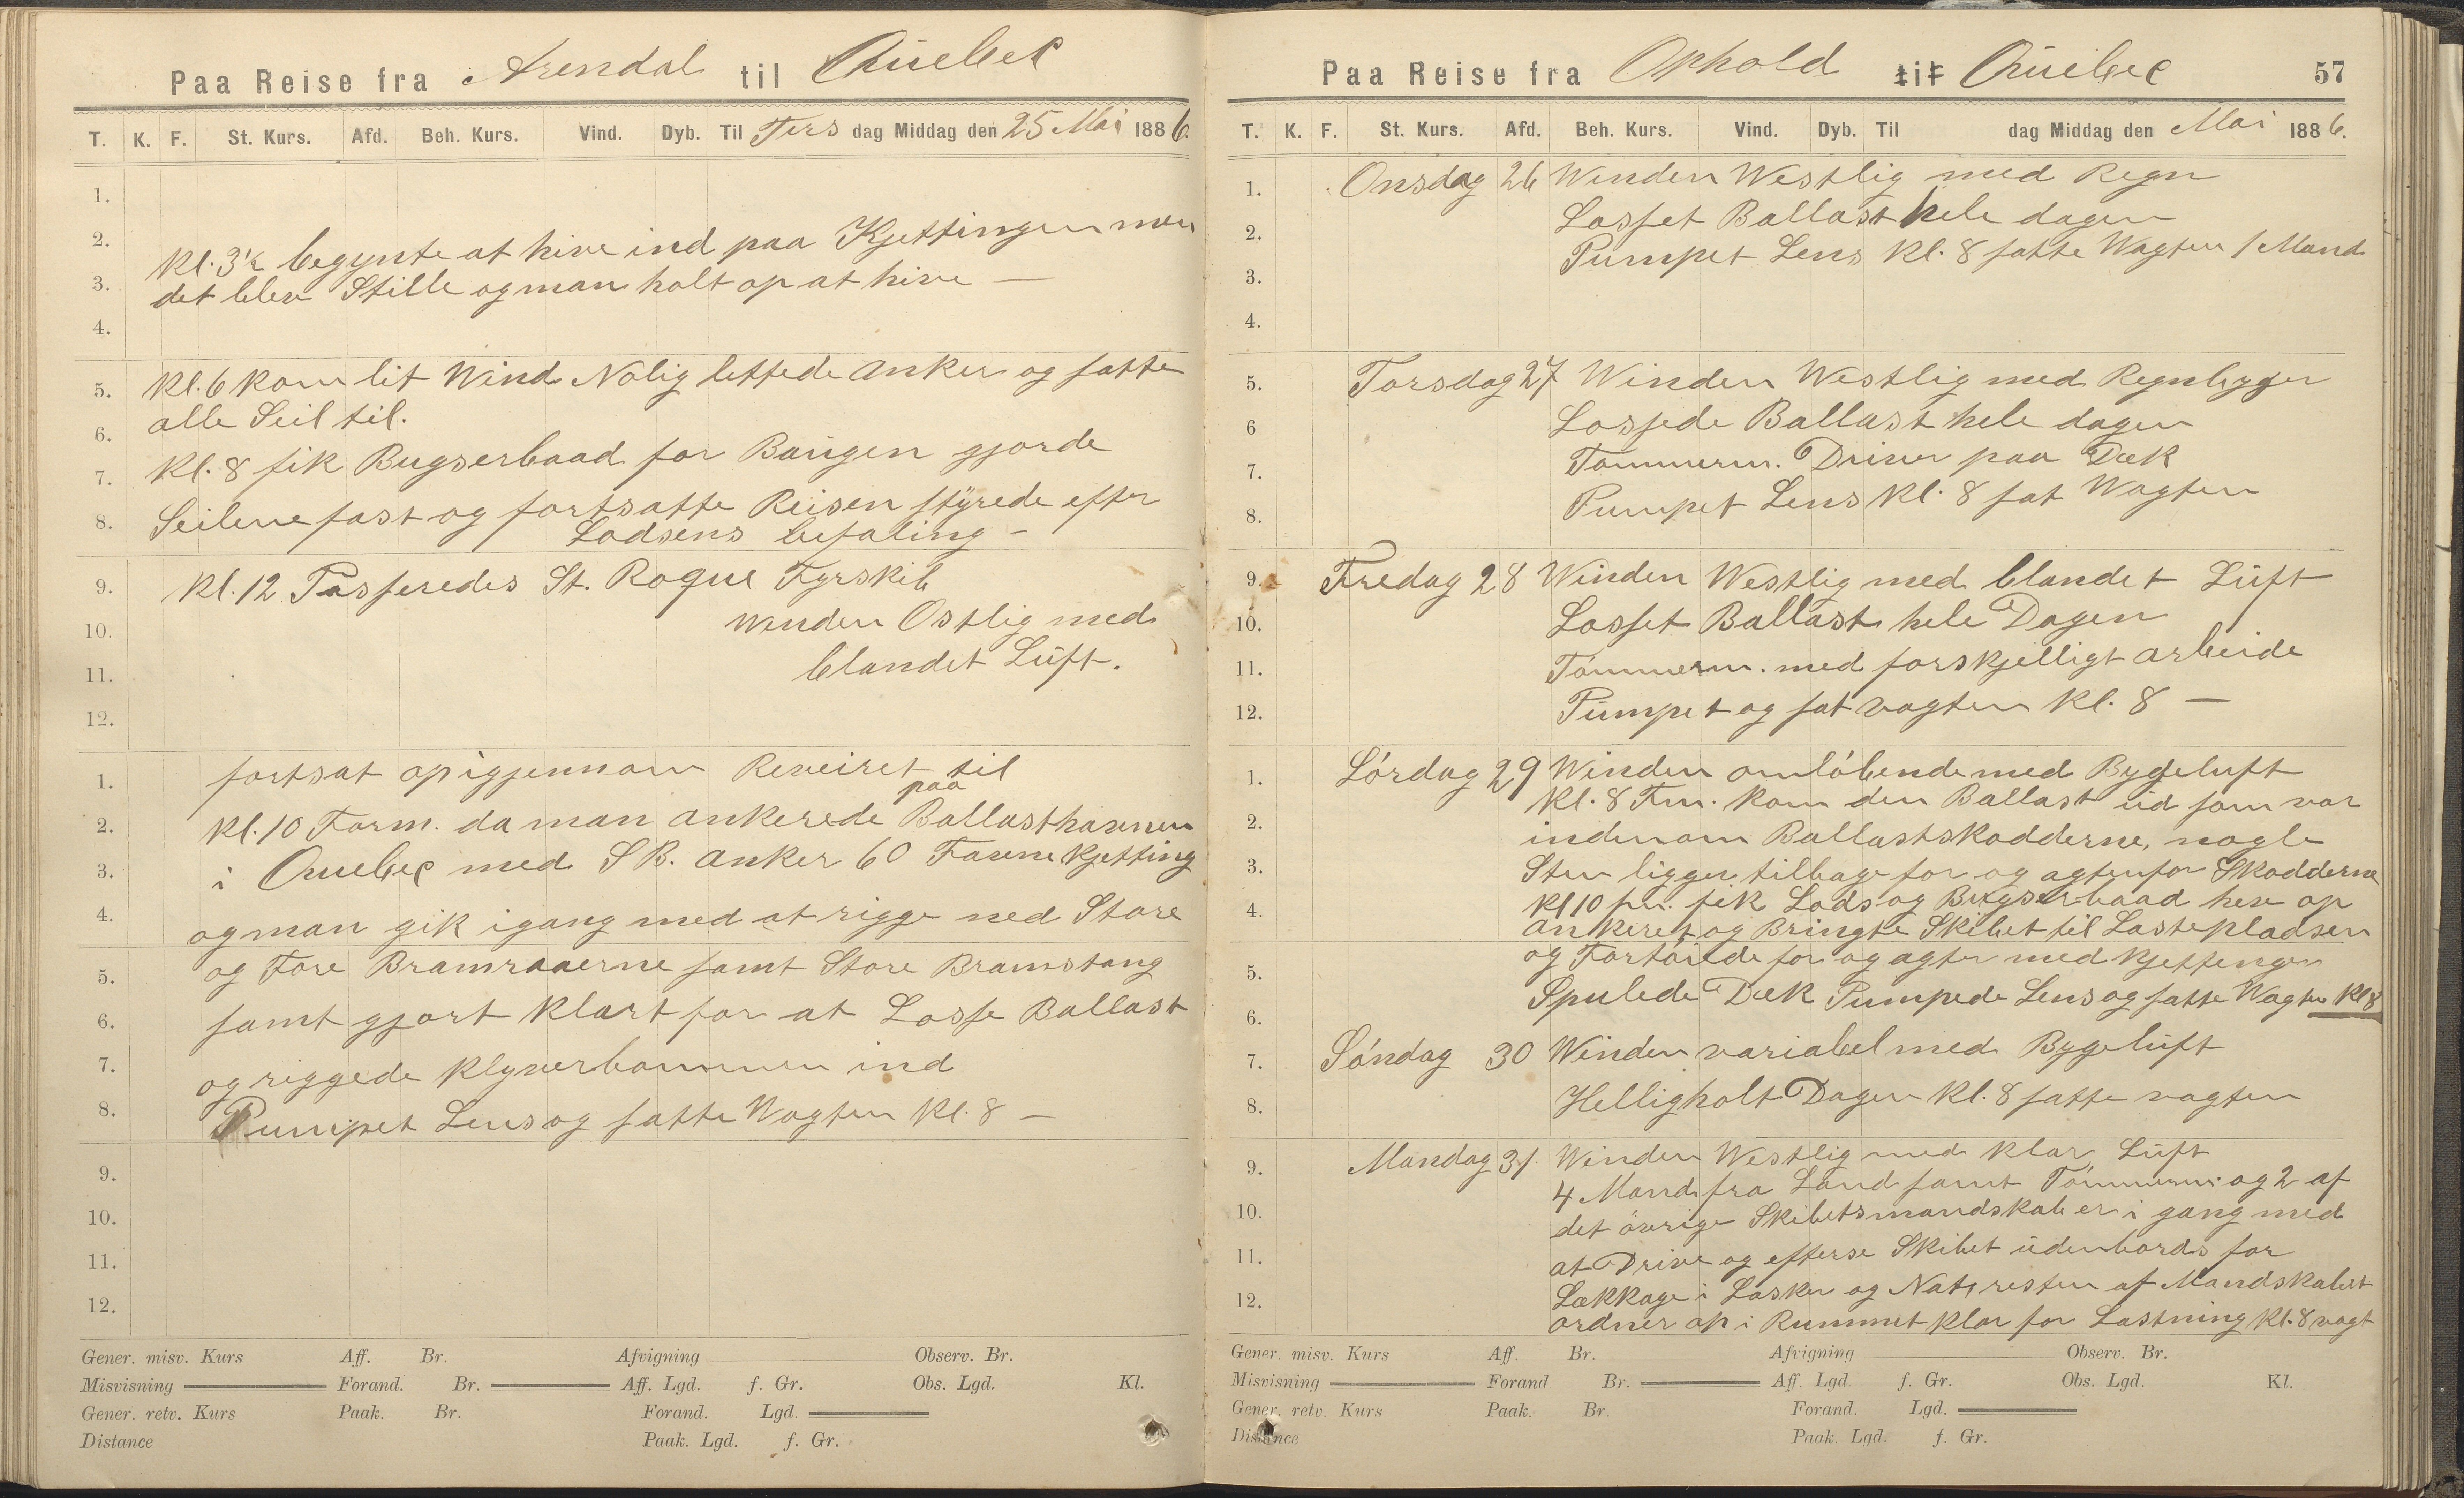 Paa Reise fra Arendal til Quebec
T. K. F. St. Kurs. Afd. Beh. Kurs. Vind. Dyb. Til Tirs dag Middag den 25 Mai 1886.
1.
2.
Kl. 3½ begynte at hive ind paa Kjettingen men
3. det blev Stille og man holt op at hive —
4.
5. Kl. 6 kom lit Wind Nolig lettede anker og satte
6. alle Seil til.
7. Kl. 8 fik Bugserbaad for Baugen gjorde
8. Seilene fast og fortsatte Reisen styrede efter
Lodsens befaling —
9. Kl. 12 Passeredes St. Roque Fyrskib
10. Winden Ostlig med
11. blandet Luft.
12.
1. fortsat op igjennom Reveiret til
paa
2. Kl. 10 Form. da man ankerede Ballasthavnen
3. i Quebec med S B. anker 60 Favne Kjetting
4. og man gik igang med at rigge ned Store
5. og Fore Bramraaerne samt Store Bramstang
6. samt gjort klart for at Losse Ballast
7. og riggede Klyverbommen ind
8. Pumpet Lens og satte Wagten Kl. 8 —
9.
10.
11.
12.
Gener. misv. Kurs Aff. Br. Afvigning Observ. Br.
Misvisning Forand. Br. Aff. Lgd. f. Gr. Obs. Lgd. Kl.
Gener. retv. Kurs Paak. Br. Forand. Lgd.
Distance Paak. Lgd. f. Gr.
Paa Reise fra Ophold til Quebec 57
T. K. F. St. Kurs. Afd. Beh. Kurs. Vind. Dyb. Til dag Middag den Mai 1886.
1. Onsdag 26 Winden Westlig med Regn
2. Losset Ballast hele dagen
3. Pumpet Lens Kl. 8 satte Wagten 1 Mand
4.
5. Torsdag 27 Winden Westlig med Regnbyger
6 Lossede Ballast hele dagen
7. Tømmerm. Driver paa Dæk
8. Pumpet Lens Kl. 8 sat Wagten
9. Fredag 28 Winden Westlig med blandet Luft
10. Losset Ballast hele Dagen
11. Tømmerm. med forskjelligt arbeide
12. Pumpet og sat vagten Kl. 8 —
1. Lórdag 29 Winden omlóbende med Bygeluft
Kl. 8 Fm. kom den Ballast ud som var
2. indenom Ballastskodderne, nogle
3. Sten ligger tilbage for og agtenfor Skodderne
4. Kl 10 fm. fik Lods og Bugserbaad hev op
ankeret og Bringte Skibet til Lastepladsen
5. og Fortóiede for og agter med Kjettinger
6. Spulede Dæk Pumpede Lens og satte Wagten Kl 8
7. Sóndag 30 Winden variabel med Bygeluft
8. Helligholt Dagen Kl. 8 satte vagten
9. Mandag 31. Winden Westlig med Klar Luft
4 Mand fra Land samt Tómmerm. og 2 af
10. det óvrige Skibetsmandskab er i gang med
11. at Drive og efterse Skibet udenbords for
12. Lækkage i Lasker og Nat, resten af Mandskabet
ordner op i Rummet klar for Lastning Kl. 8 vagt
Gener. misv. Kurs Aff. Br. Afvigning Observ. Br.
Misvisning Forand Br. Aff. Lgd f. Gr. Obs. Lgd. Kl.
Gener. retv. Kurs Paak. Br. Forand. Lgd.
Distance Paak. Lgd. f. Gr.